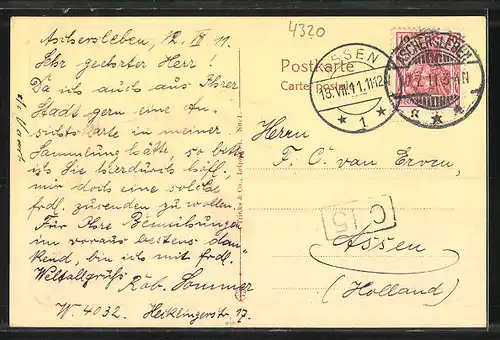 4320
Aschersleben, 12. VII 11.
Sehr geehrter Herr!
Da ich auch aus Ihrer
Stadt gern eine An-
sichtskarte in meiner
Sammlung hätte, so bitte
ich Sie hierdurch höfl.
mir doch eine solche
frdl. zusenden zu wollen.
Für Ihre Bemühungen
im voraus bestens dan-
kend, bin ich mit frdl.
Weltallgruß
Rob. Sommer
W. 4032. Heiklingerstr. 17.
Postkarte
Carte postale
ASSEN
18.VII.11.11-12
1
ASCHERSLEBEN
Herrn
F. C. van Erven,
C 5
Assen
(Holland)